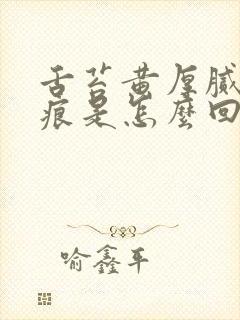 舌苔黄厚腻
痕是怎麼回
喻鑫平